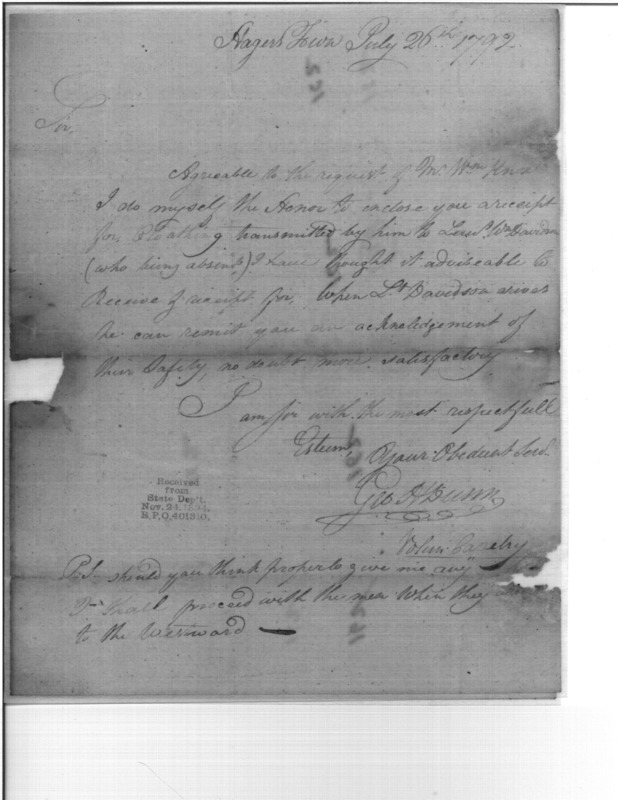 Hagers Town July 26th 1792
Sir,
Agreeable to the request of Mr. Wm Knox
I do myself the Honor to enclose you a receipt
for Cloathing transmitted by him to Lieut. Wm Davidson
(who being absent) I have thought it adviseable to
Receive & receipt for. When Lt. Davidson arives
he can remit you an acknoledgement of
their Safety, no doubt more satisfactory
I am sir with the most respectfull
Esteem, Your Obedient Servt.
Geo
Volun. Cavalry
Received
from
State Dep't.
Nov. 24, 1894.
R.P.O. 401350.
P.S. should you think proper to give me any
I shall proceed with the men when they
to the Westward —